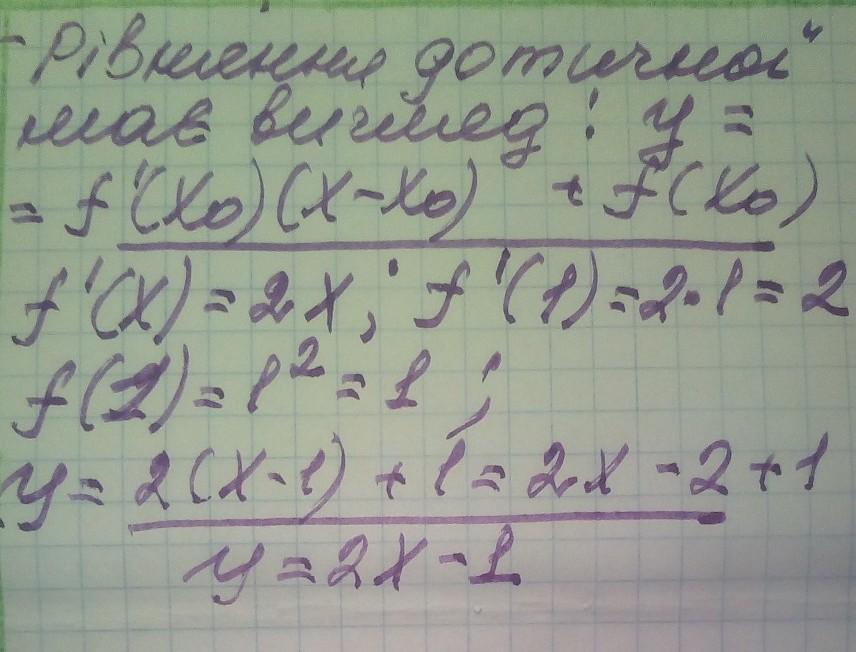 Рівняння дотичної
має вигляд: y =
= f'(x₀)(x-x₀) + f(x₀)
f'(x) = 2x; f'(1)=2·1=2
f(1)=1²=1;
y= 2(x-1)+1=2x-2+1
y=2x-1